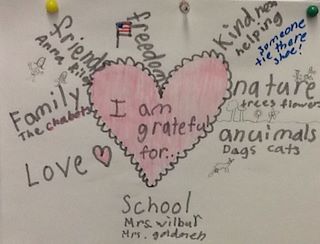 friends
Anna
freedom
Kindness
helping
someone
tie there
shoe!
Family
The chabots
I am
grateful
for...
nature
trees flowers
anuimals
Dags cats
Love
School
Mrs. wilbur
Mrs.